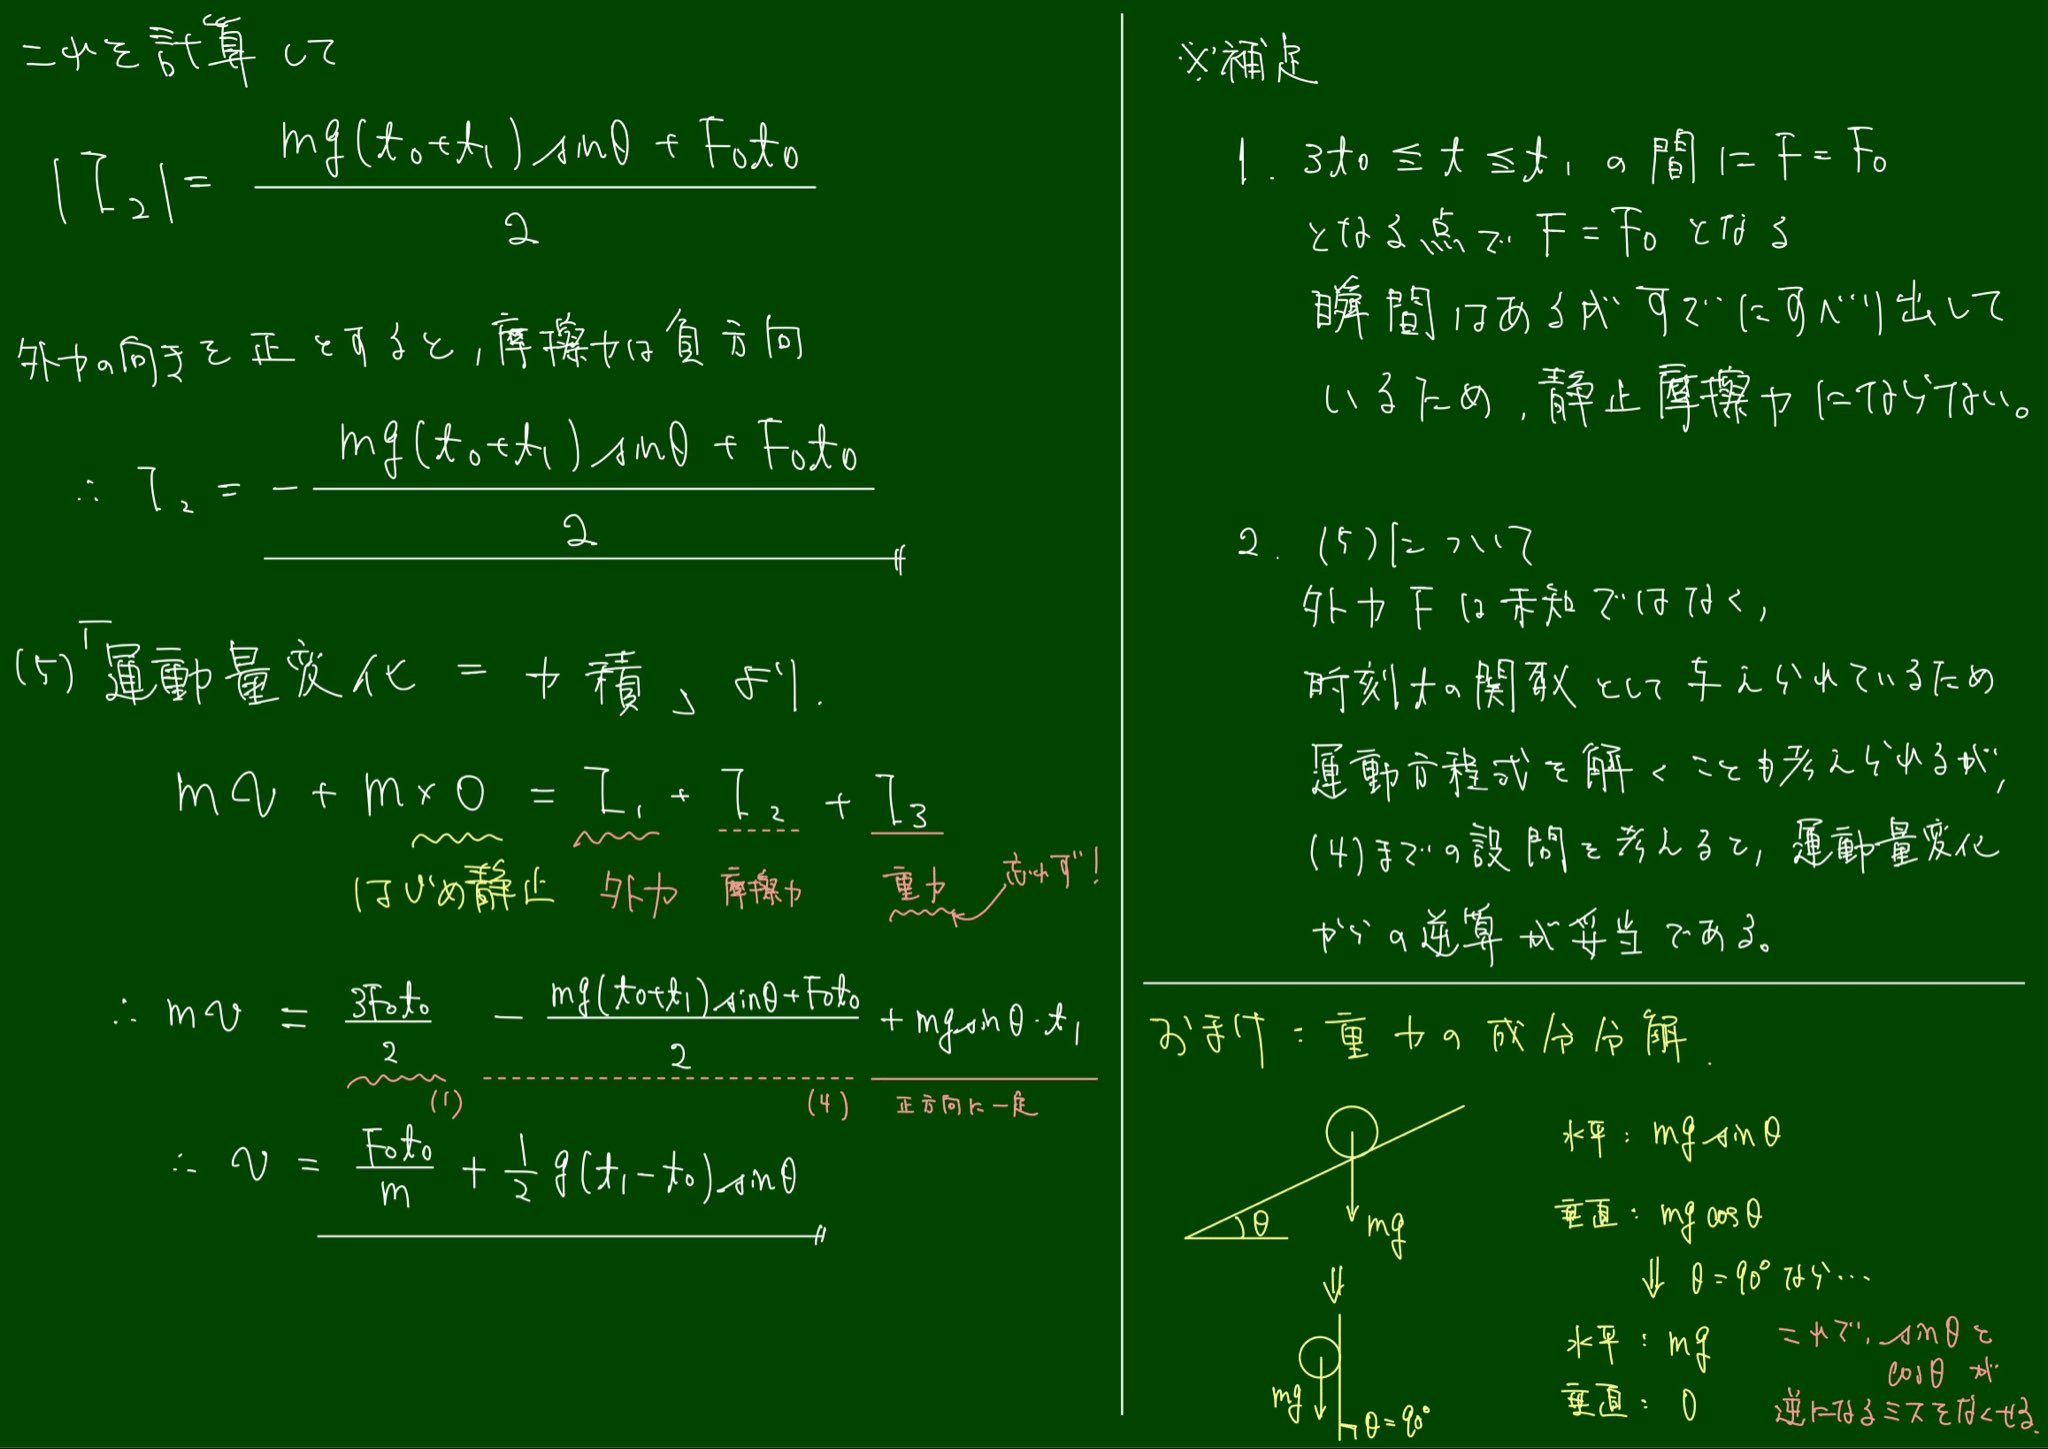 これを計算して
|I₂| = mg(t₀+t₁)sinθ + F₀t₀ / 2
外力の向きを正とすると,摩擦力は負方向
∴ I₂ = - mg(t₀+t₁)sinθ + F₀t₀ / 2
(5)「運動量変化 = 力積」より.
mv + m×0 = I₁ + I₂ + I₃
はじめ静止 外力 摩擦力 重力 忘れず!
∴ mv = 3F₀t₀ / 2 - mg(t₀+t₁)sinθ+F₀t₀ / 2 + mg sinθ・t₁
(1) (4) 正方向に一定
∴ v = F₀t₀ / m + 1/2 g(t₁-t₀)sinθ
※補足
1. 3t₀ ≦ t ≦ t₁ の間に F = F₀
となる点で F = F₀ となる
瞬間はあるがすでにすべり出して
いるため,静止摩擦力にならない。
2. (5)について
外力 F は未知ではなく,
時刻tの関数として与えられているため
運動方程式を解くことも考えられるが,
(4)までの設問を考えると,運動量変化
からの逆算が妥当である。
おまけ:重力の成分分解.
水平: mg sinθ
垂直: mg cosθ
θ
mg
⇓ θ = 90° なら…
⇓
水平: mg
垂直: 0
mg
θ = 90°
これで, sinθと
cosθ が
逆になるミスをなくせる.